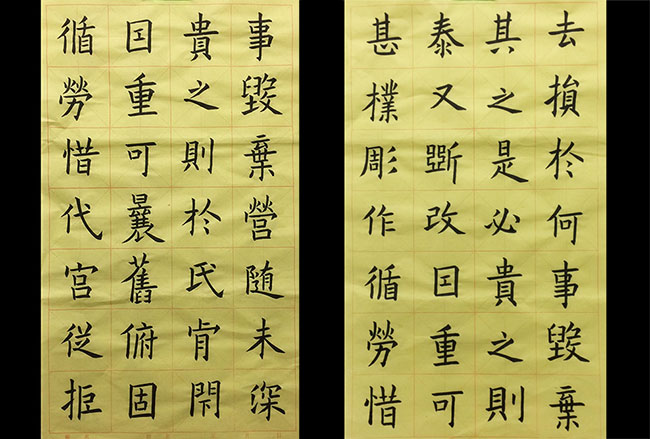 事毀棄營随未深
貴之則扵氏肯閇
囙重可曩舊俯固
循勞惜代宮從拒
去損扵何事毀棄
其之是必貴之則
泰又斲改囙重可
甚樸彫作循勞惜